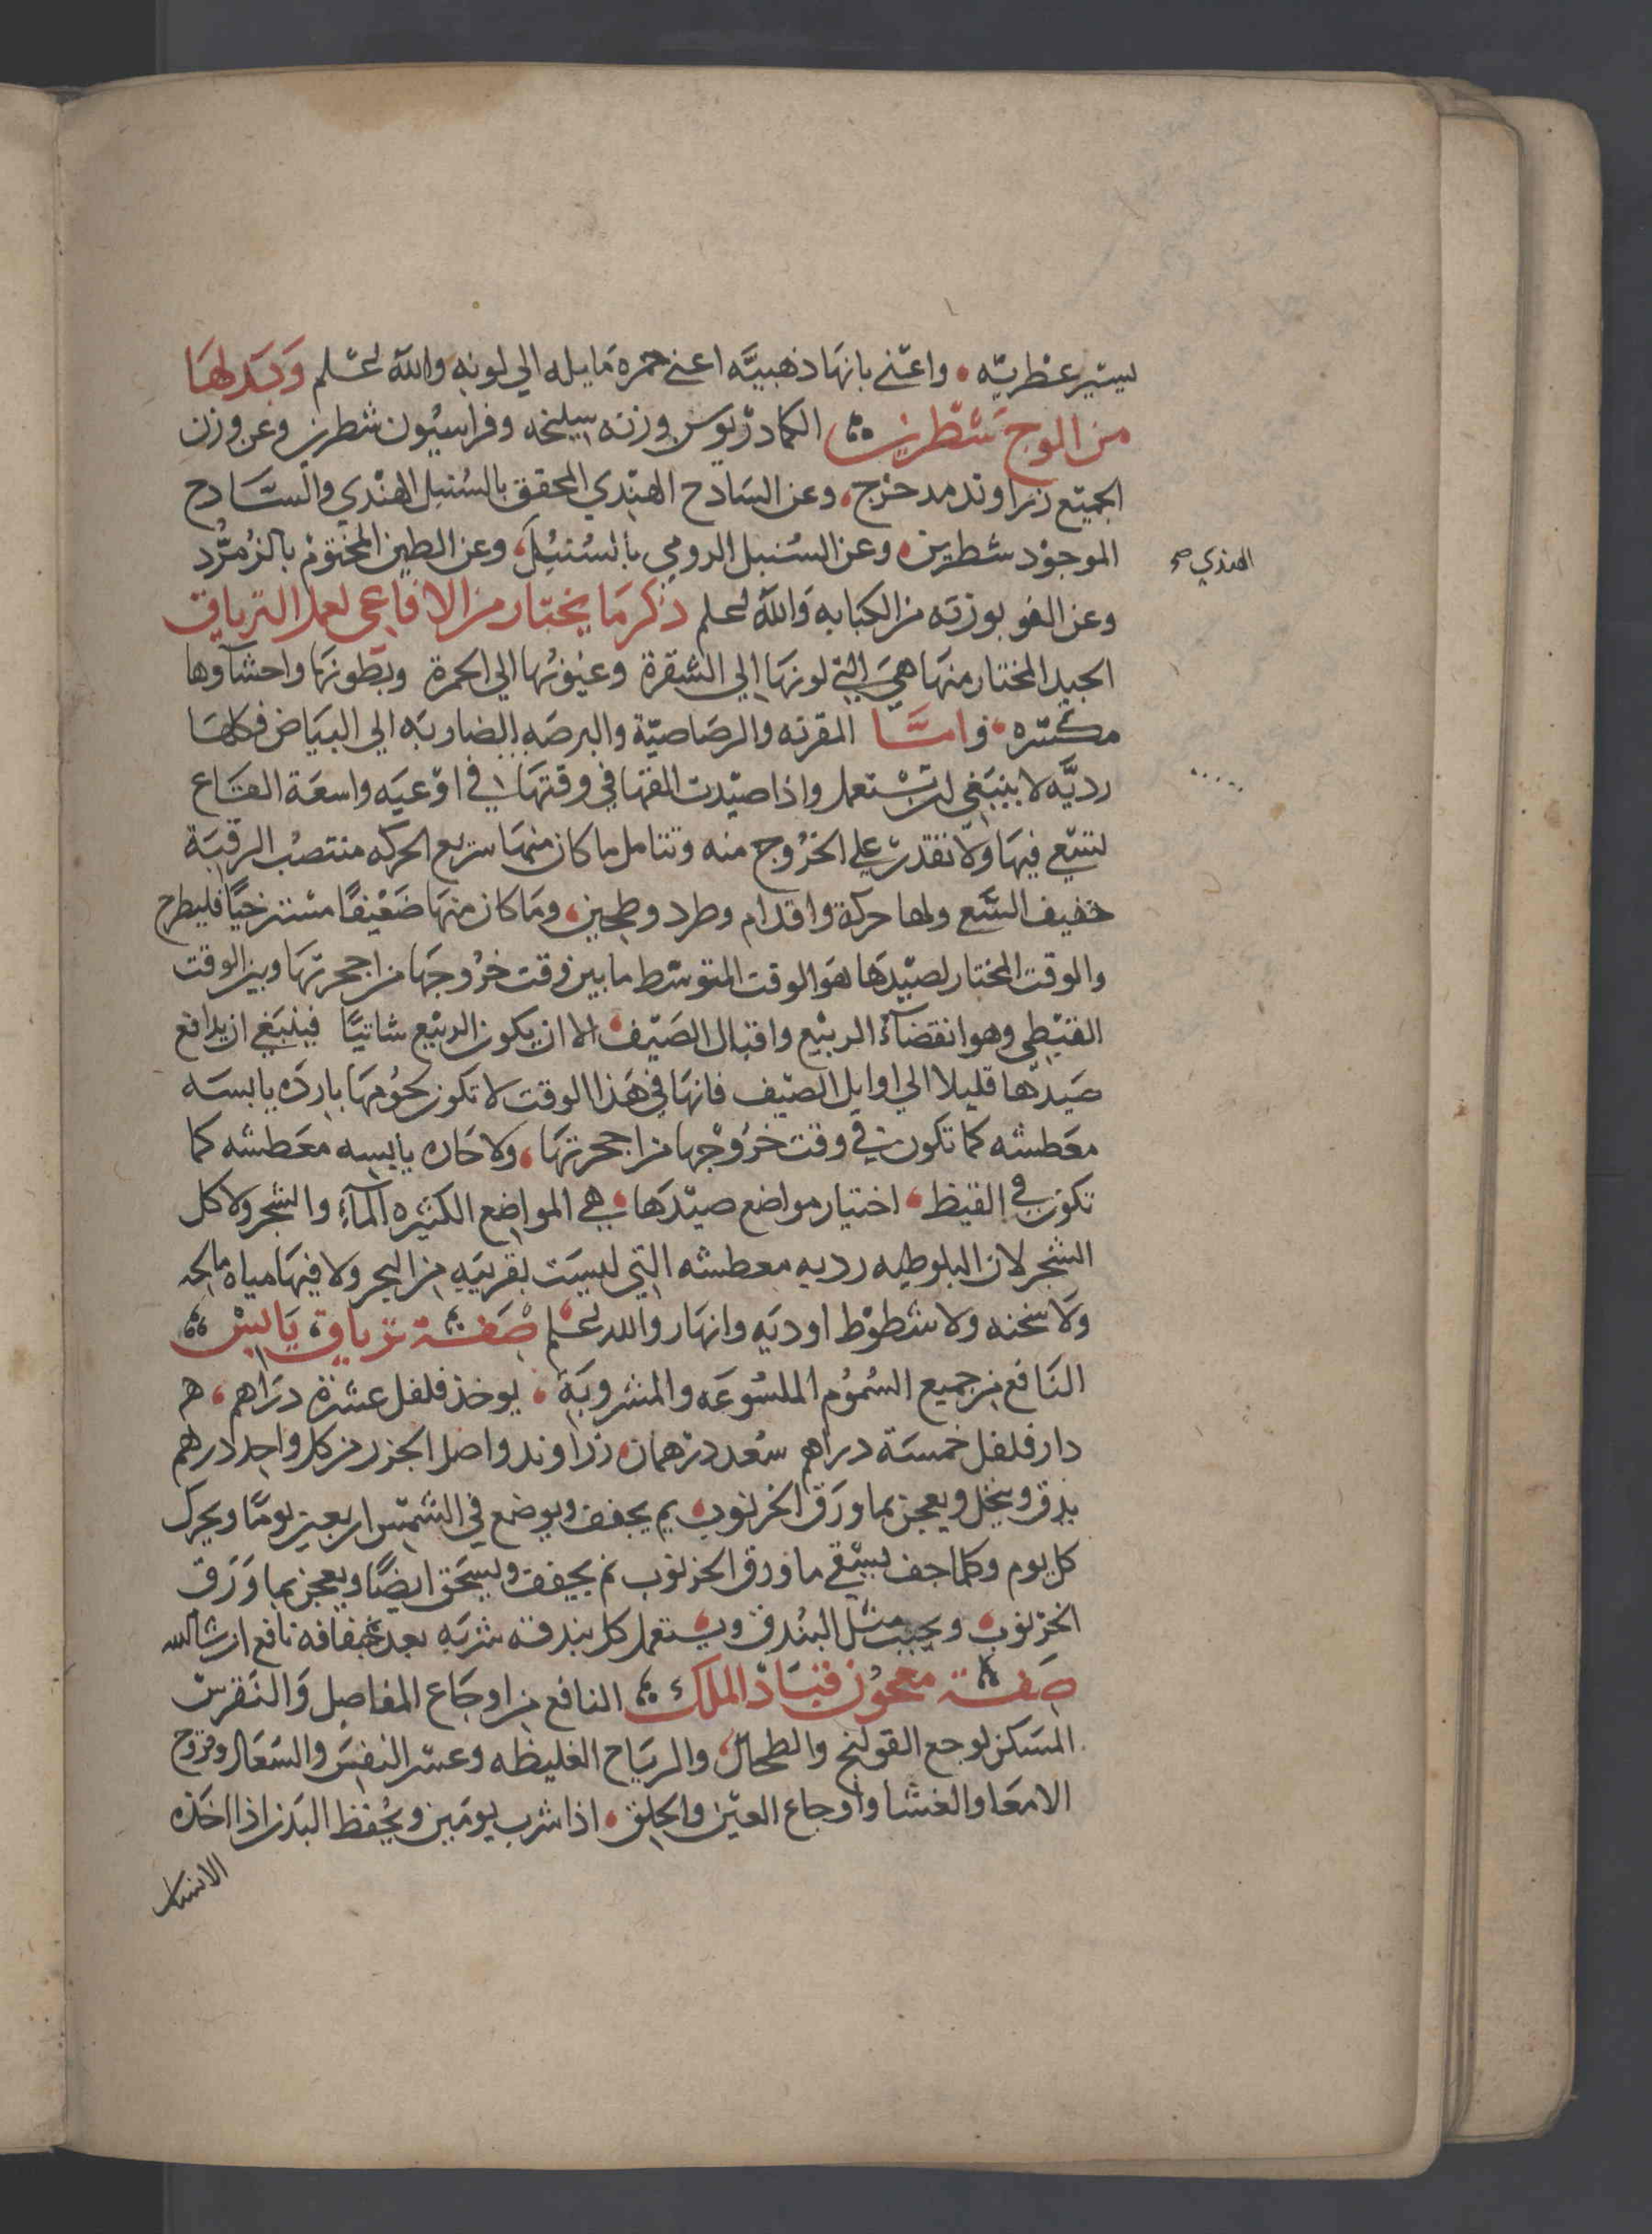 يسير عطريه • واعني بانها ذهبيه اعني حمره مايله الي لونه والله اعلم وبدلها
من الوج شطرين الكمادريوس وزنه سليخه وفراسيون شطرين وعن وزن
الجميع زراوند مدحرج، وعن السادج الهندي المحقق بالسنبل الهندي والسادج
الموجود شطرين، وعن السنبل الرومي بالسنبل، وعن الطين المختوم بالزمرد
الهندي صح
وعن الفو بوزنه من الكبابه والله اعلم ذكر ما يختار من الافاعي لعمل الترياق
الجيد المختار منها هي التي لونها الي الشقرة وعيونها الي الحمرة وبطونها واحشآوها
مكتنزه، واما المقرنه والرصاصية والبرصه الضاربه الي البياض فكلها
رديه لا ينبغي ان تستعمل واذا صيدت القها في وقتها في اوعيه واسعة القاع
لتسعي فيها ولا تقدر علي الخروج منه وتتامل ما كان منها سريع الحركه منتصب الرقبة
خفيف السعي ولها حركة واقدام وطرد، وما كان منها ضعيفا مسترخيا فليطرح
والوقت المختار لصيدها هو الوقت المتوسط ما بين وقت خروجها من اجحرتها وبين الوقت
القيظي وهو انقضآء الربيع واقبال الصيف، الا ان يكون الربيع شاتيا فينبغي ان يدافع
صيدها قليلا الي اوايل الصيف فانها في هذا الوقت لا تكون لحومها بارده يابسه
معطشه كما تكون في وقت خروجها من اجحرتها، ولا حاره يابسه معطشه كما
تكون في القيظ، اختيار مواضع صيدها، هي المواضع الكثيره المآء والشجر ولا كل
الشجر لان البلوطيه رديه معطشه التي ليست بقريبه من البحر ولا فيها مياه مالحه
ولا سخنه ولا شطوط اوديه وانهار والله اعلم صفة ترياق يابس
النافع من جميع السموم الملسوعه والمشروبه، يوخذ فلفل عشرة دراهم،
دار فلفل خمسة دراهم سعد درهمان، زراوند واصل الجزر من كل واحد درهم
يدق وينخل ويعجن بما ورق الخرنوب، ثم يجفف ويوضع في الشمس اربعين يوما ويحرك
كل يوم وكلما جف يسقي ما ورق الخرنوب ثم يجفف ويسحق ايضا ويعجن بما ورق
الخرنوب، ويحبب مثل البندق ويستعمل كل بندقه شربه بعد جفافه نافع ان شا الله
صفة معجون قباد الملك النافع من اوجاع المفاصل والنقرس
المسكن لوجع القولنج والطحال، والرياح الغليظه وعسر النفس والسعال وقروح
الامعا والغشا واوجاع العين والحلق، اذا شرب يومين ويحفظ البدن اذا اخذه
الانسان